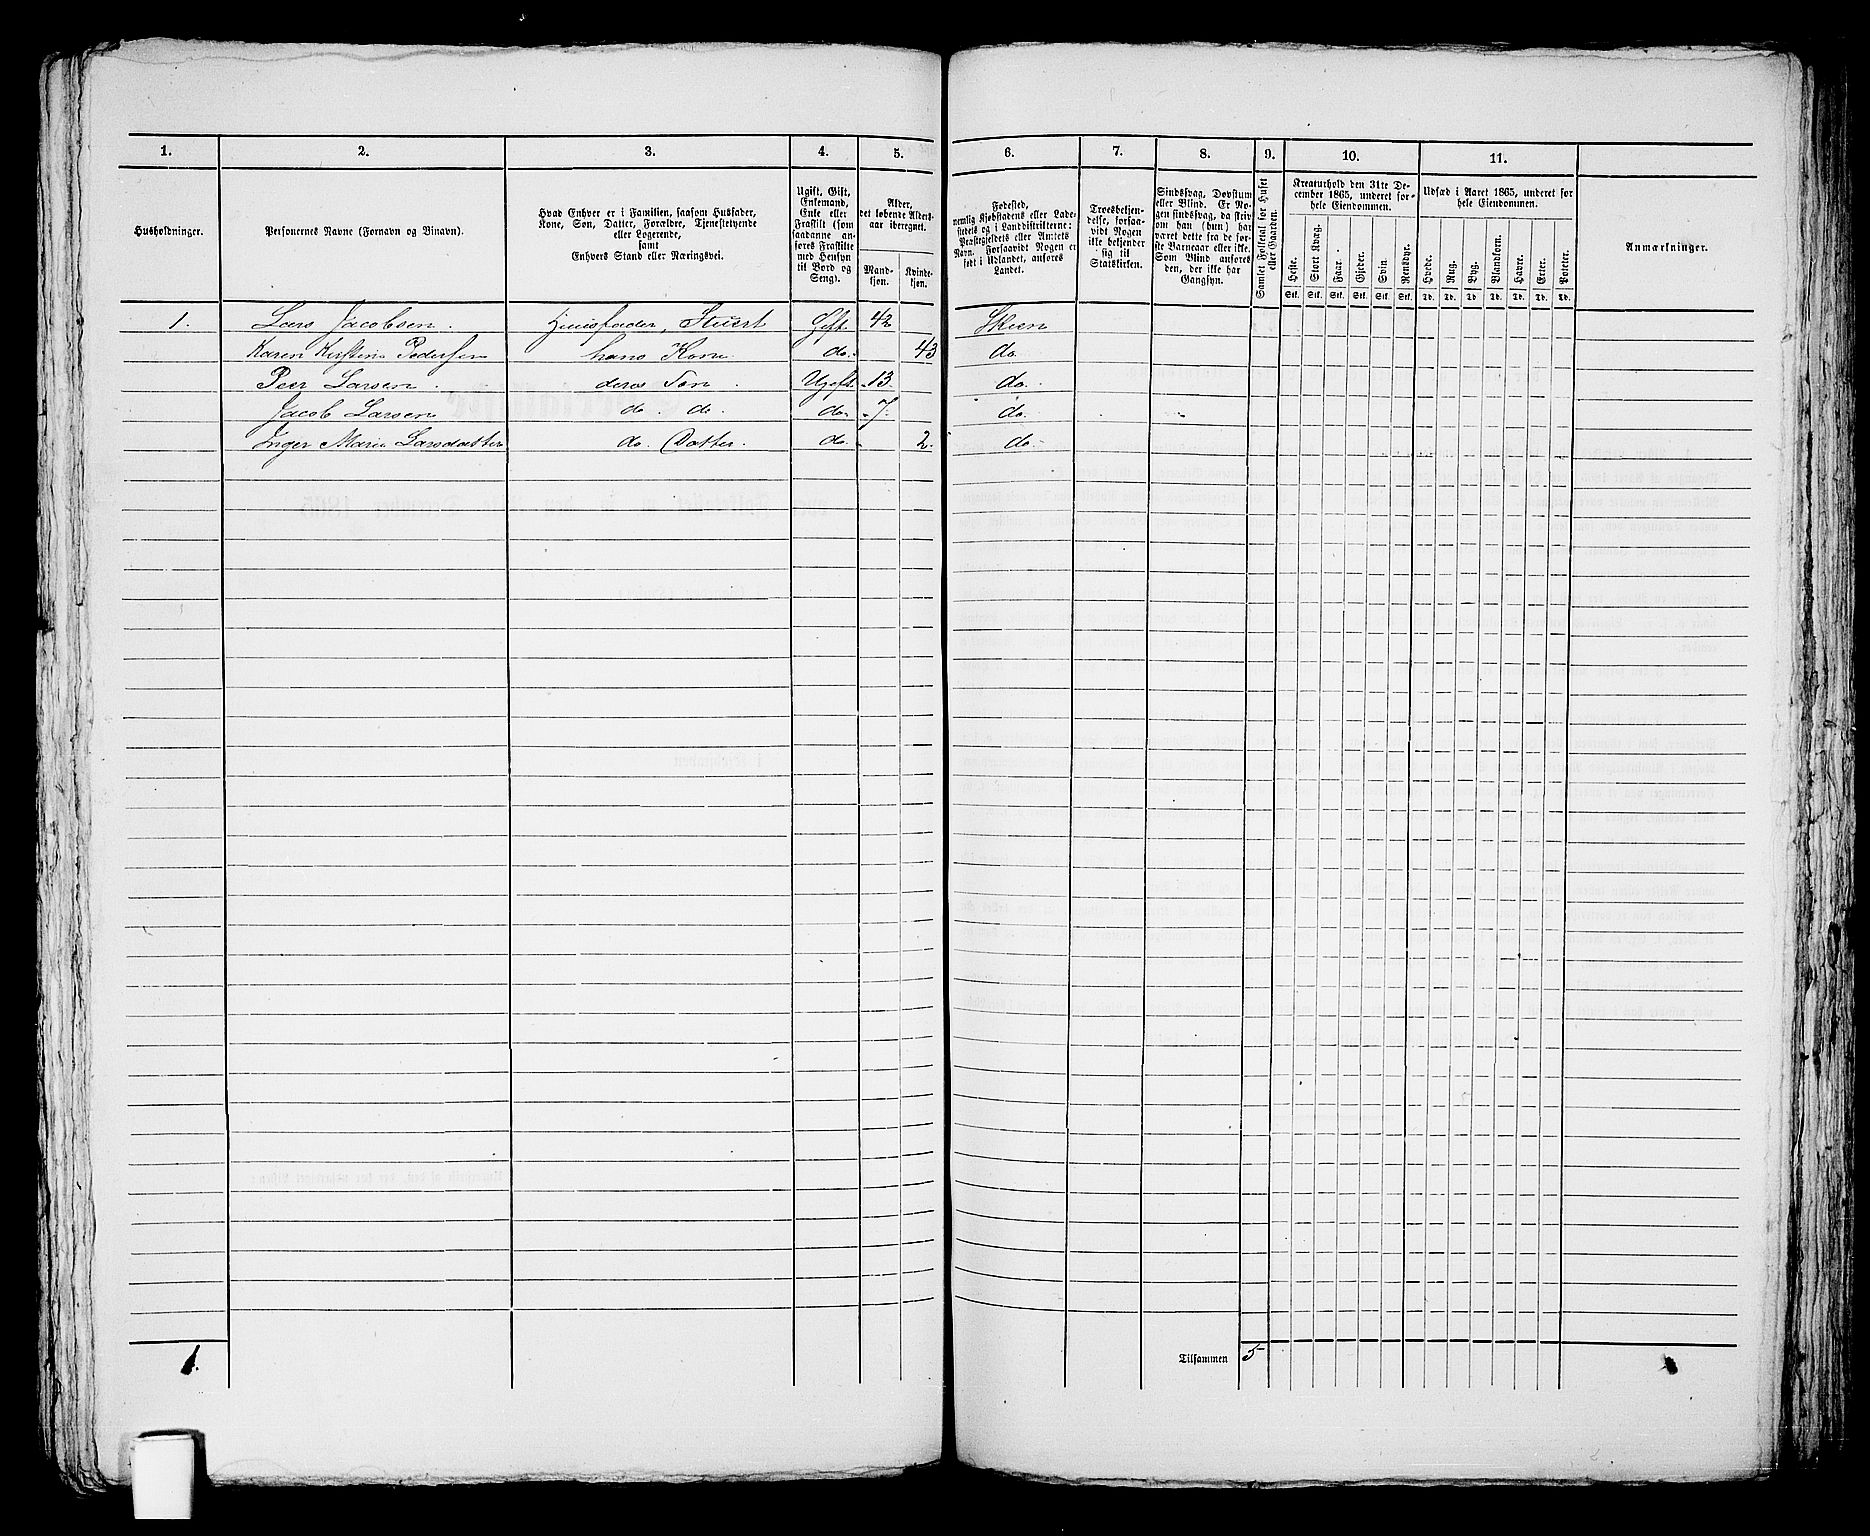 1. 2. 3. 4. 5. 6. 7. 8. 9. 10. 11.
Husholdninger.
Personernes Navne (Fornavn og Binavn).
Hvad Enhver er i Familien, saasom Husfader,
Kone, Søn, Datter, Forældre, Tjenestetyende
eller Logerende,
samt
Enhvers Stand eller Næringsvei.
Ugift, Gift,
Enkemand,
Enke eller
Fraskilt (som
saadanne an-
føres Fraskilte
med Hensyn
til Bord og
Seng).
Alder,
det løbende Alders-
aar iberegnet.
Mand-
kjøn.
Kvinde-
kjøn.
Fødested,
nemlig Kjøbstadens eller Lade-
stedets og i Landdistrikterne:
Præstegjeldets eller Amtets
Navn. Forsaavidt Nogen er
født i Udlandet, anføres
Landet.
Troesbekjen-
delse, forsaa-
vidt Nogen
ikke bekjender
sig til
Statskirken.
Sindssvag, Døvstum
eller Blind. Er No-
gen sindssvag, da skriv
om han (hun) har
været dette fra de før-
ste Barneaar eller ikke.
Som Blind anføres
den, der ikke har
Gangsyn.
Samlet Folketal for Huset
eller Gaarden.
Kreaturhold den 31te De-
cember 1865, underet for
hele Eiendommen.
Heste. Stort Kvæg. Faar. Gjeder. Svin. Rensdyr.
Stk. Stk. Stk. Stk. Stk. Stk.
Udsæd i Aaret 1865, underet for
hele Eiendommen.
Hvede. Rug. Byg. Blandkorn. Havre. Erter. Poteter.
Td. Td. Td. Td. Td. Td. Td.
Anmærkninger.
1. Lars Jacobsen. Huusfader, Stuert Gift 42 Skien
Karen Kirstine Pedersen hans Kone do. 43 do.
Peer Larsen. deres Søn. Ugift 13 do.
Jacob Larsen do. do. do. 7 do.
Inger Marie Larsdatter do. Datter. do. 2. do.
1. Tilsammen 5